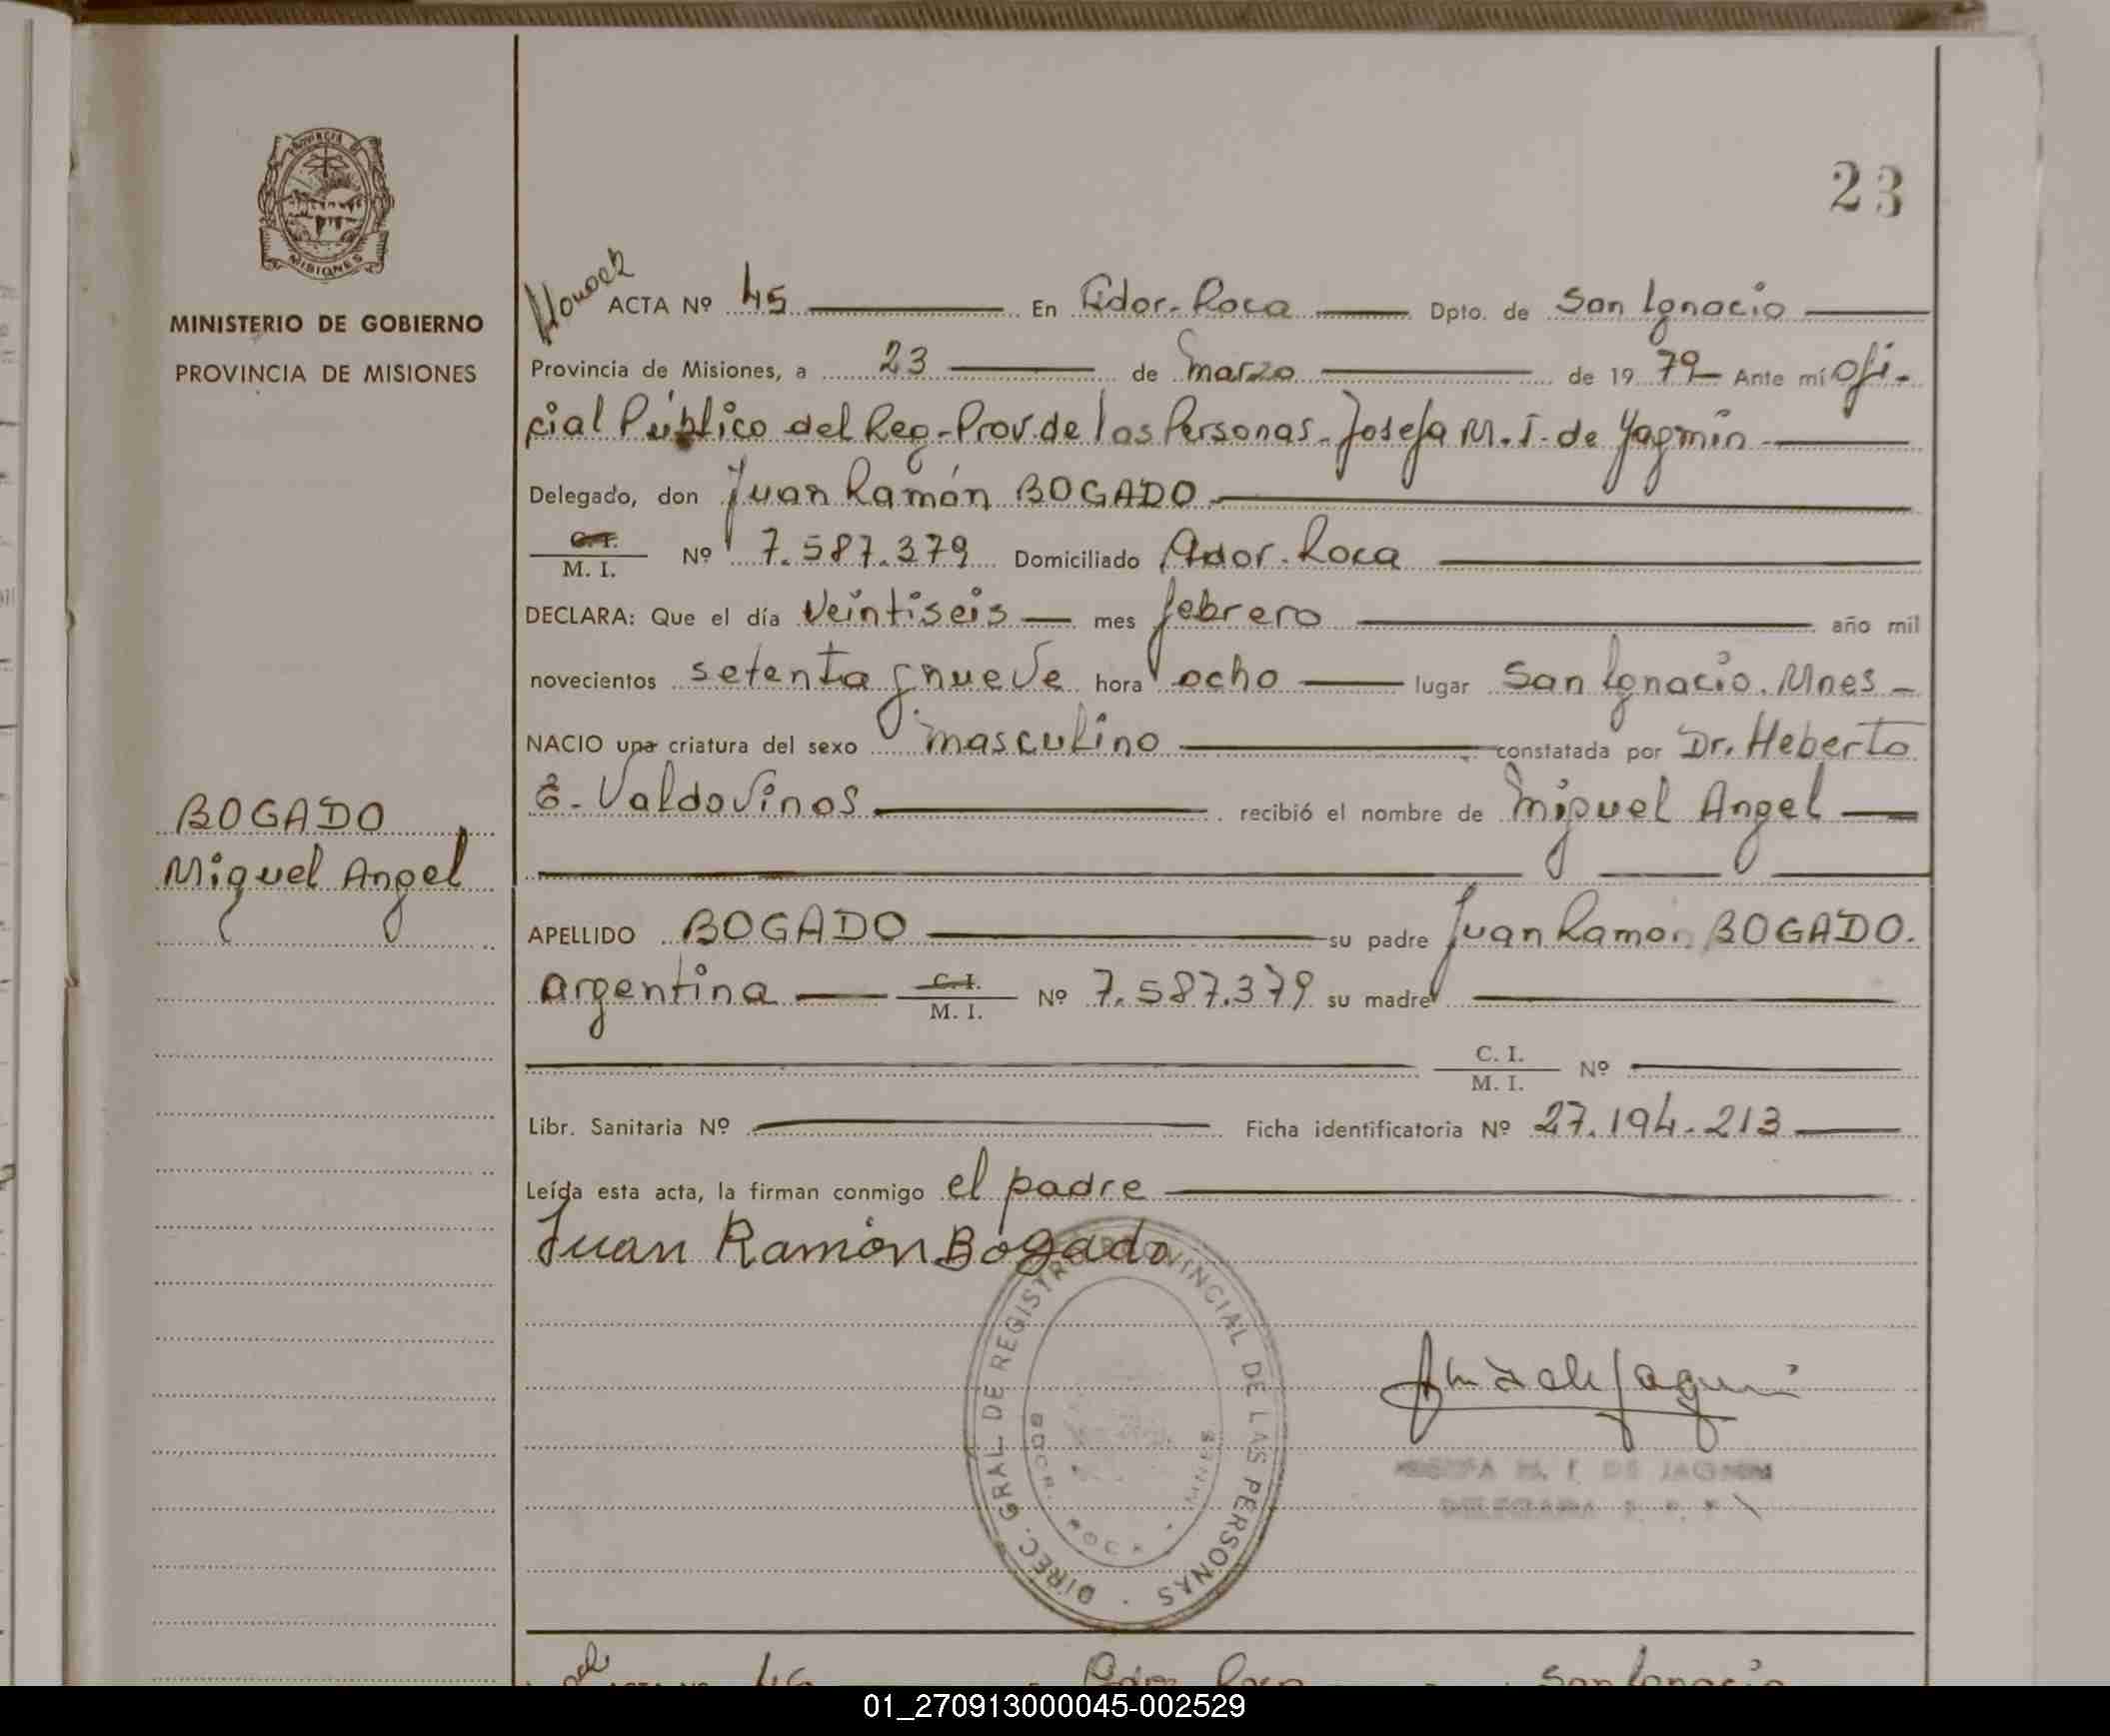 PROVINCIA D
MISIONES
MINISTERIO DE GOBIERNO
PROVINCIA DE MISIONES
BOGADO
Miguel Angel
23
ACTA Nº 45 En Gdor. Roca Dpto. de San Ignacio
Provincia de Misiones, a 23 de marzo de 1979 Ante mí Ofi-
cial Público del Reg. Prov. de las Personas. Josefa M. F. de Yagmín
Delegado, don Juan Ramón BOGADO
C. I. / M. I. Nº 7.587.379 Domiciliado Gdor. Roca
DECLARA: Que el día veintiseis mes febrero año mil
novecientos setenta y nueve hora ocho lugar San Ignacio. Mnes -
NACIO una criatura del sexo masculino constatada por Dr. Heberto
E. Valdovinos recibió el nombre de Miguel Angel
APELLIDO BOGADO su padre Juan Ramon BOGADO.
argentina C. I. / M. I. Nº 7.587.379 su madre
C. I. / M. I. Nº
Libr. Sanitaria Nº Ficha identificatoria Nº 27.194.213
Leída esta acta, la firman conmigo el padre
Juan Ramón Bogado
DIREC. GRAL DE REGISTRO PROVINCIAL DE LAS PERSONAS
ROCA
M. F. DE JAGMIN
DELEGADA
46 Gdor. Roca San Ignacio
01_270913000045-002529